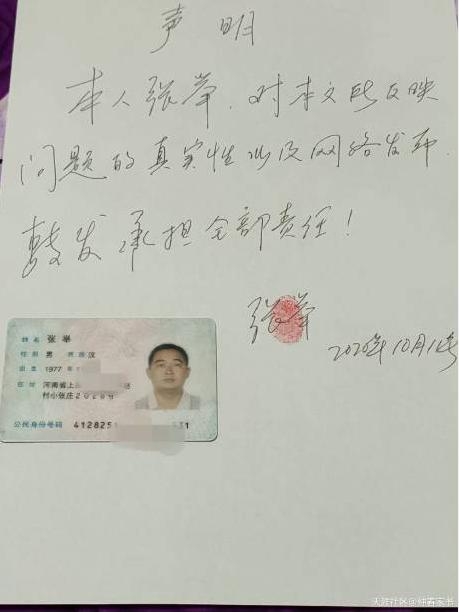 声明
本人张举.对本文所反映
问题的真实性以及网络发布.
转发承担全部责任!
张举
2020年10月1号
姓名 张举
性别 男 民族 汉
出生 1977年
住址 河南省上
村小张庄
公民身份号码 4128251
天涯社区@